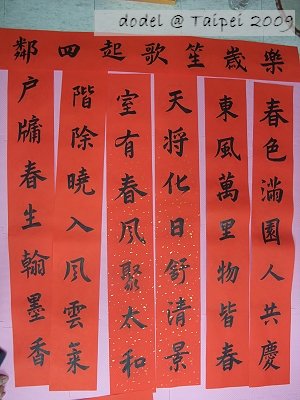 dodel @ Taipei 2009
樂歲笙歌起四鄰
春色滿園人共慶
東風萬里物皆春
天將化日舒清景
室有春风聚太和
階除曉入风雲氣
戶牖春生翰墨香